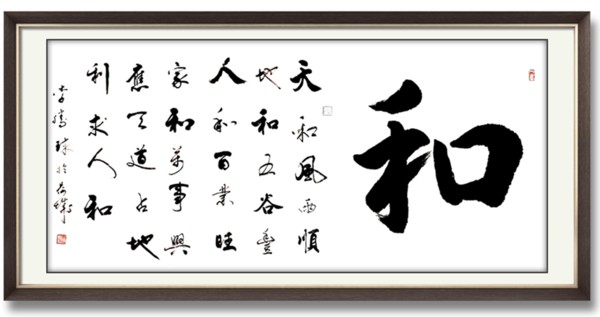 和
天和風雨順
地和五谷豐
人和百業旺
家和萬事興
應天道占地
利求人和